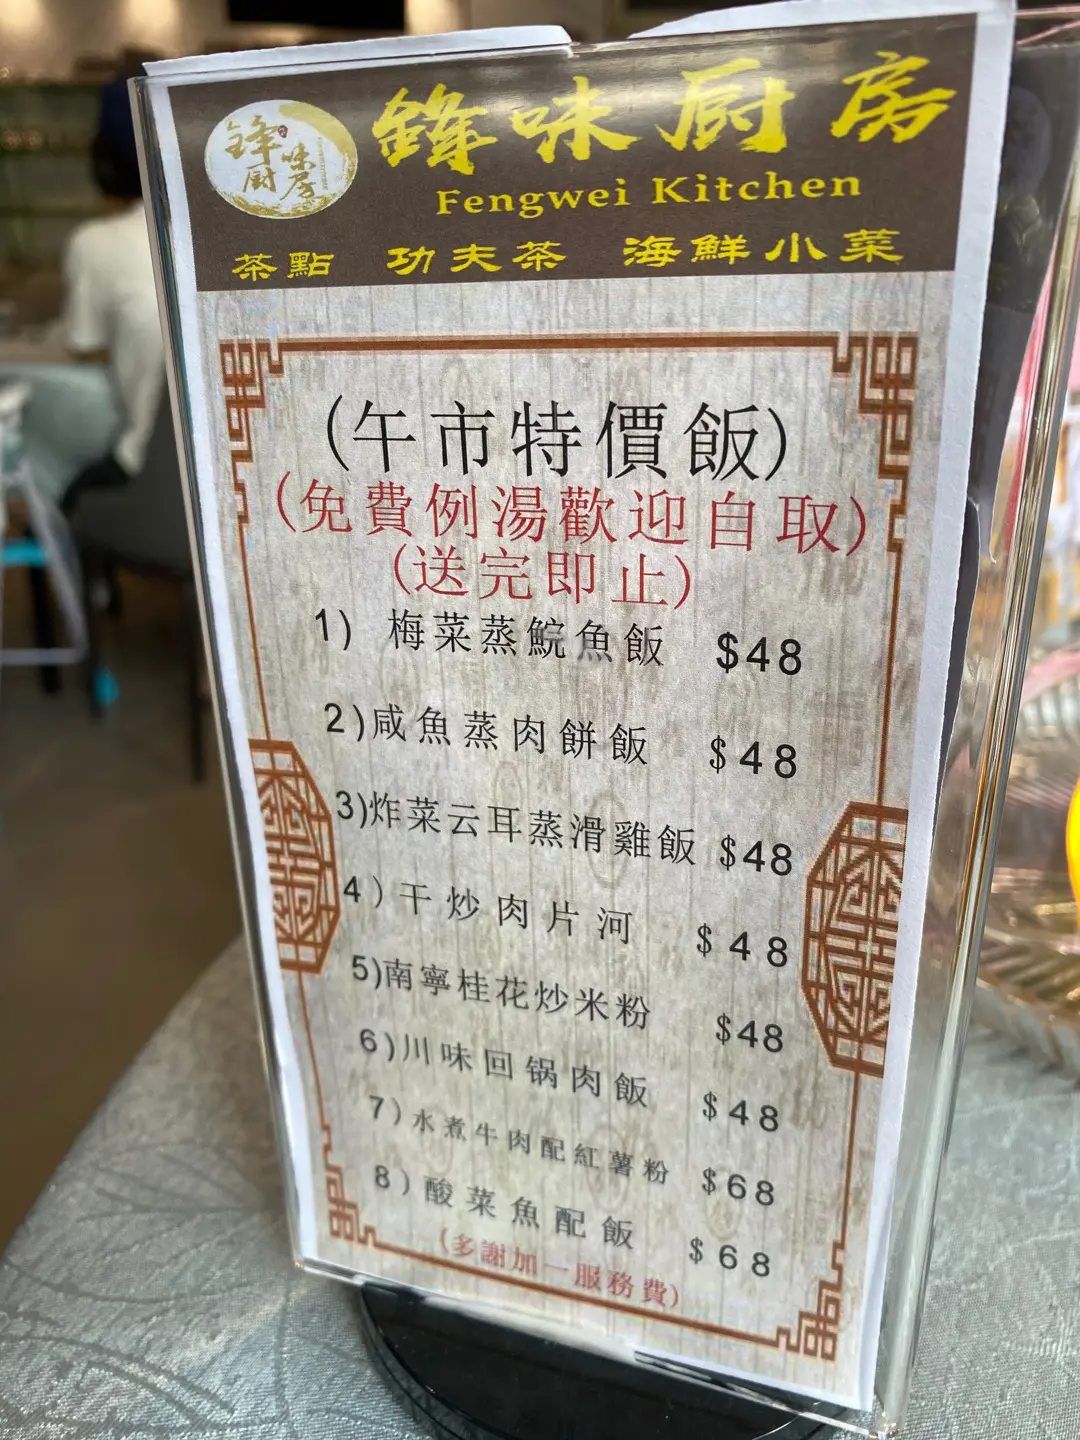 鋒味廚房
鋒味廚房
Fengwei Kitchen
茶點 功夫茶 海鮮小菜
(午市特價飯)
(免費例湯歡迎自取)
(送完即止)
1) 梅菜蒸鯇魚飯 $48
2)咸魚蒸肉餅飯 $48
3)炸菜云耳蒸滑雞飯 $48
4)干炒肉片河 $48
5)南寧桂花炒米粉 $48
6)川味回锅肉飯 $48
7)水煮牛肉配紅薯粉 $68
8)酸菜魚配飯 $68
(多謝加一服務費)